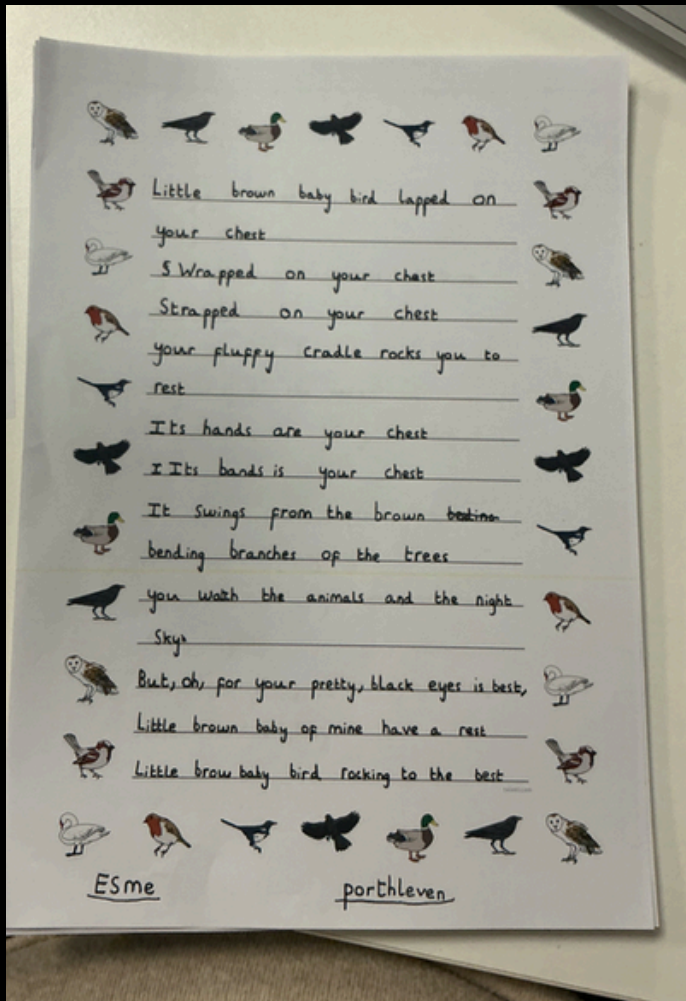 Little brown baby bird lapped on
your chest
S Wrapped on your chest
Strapped on your chest
your fluffy cradle rocks you to
rest
Its hands are your chest
I Its bands is your chest
It swings from the brown
bending branches of the trees
you watch the animals and the night
Sky.
But, oh, for your pretty, black eyes is best,
Little brown baby of mine have a rest
Little brow baby bird rocking to the best
ESme
porthleven